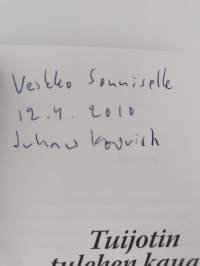 Veikko Sonniselle
12.4.2010
Juhani
Tuijotin
tulehen kaua